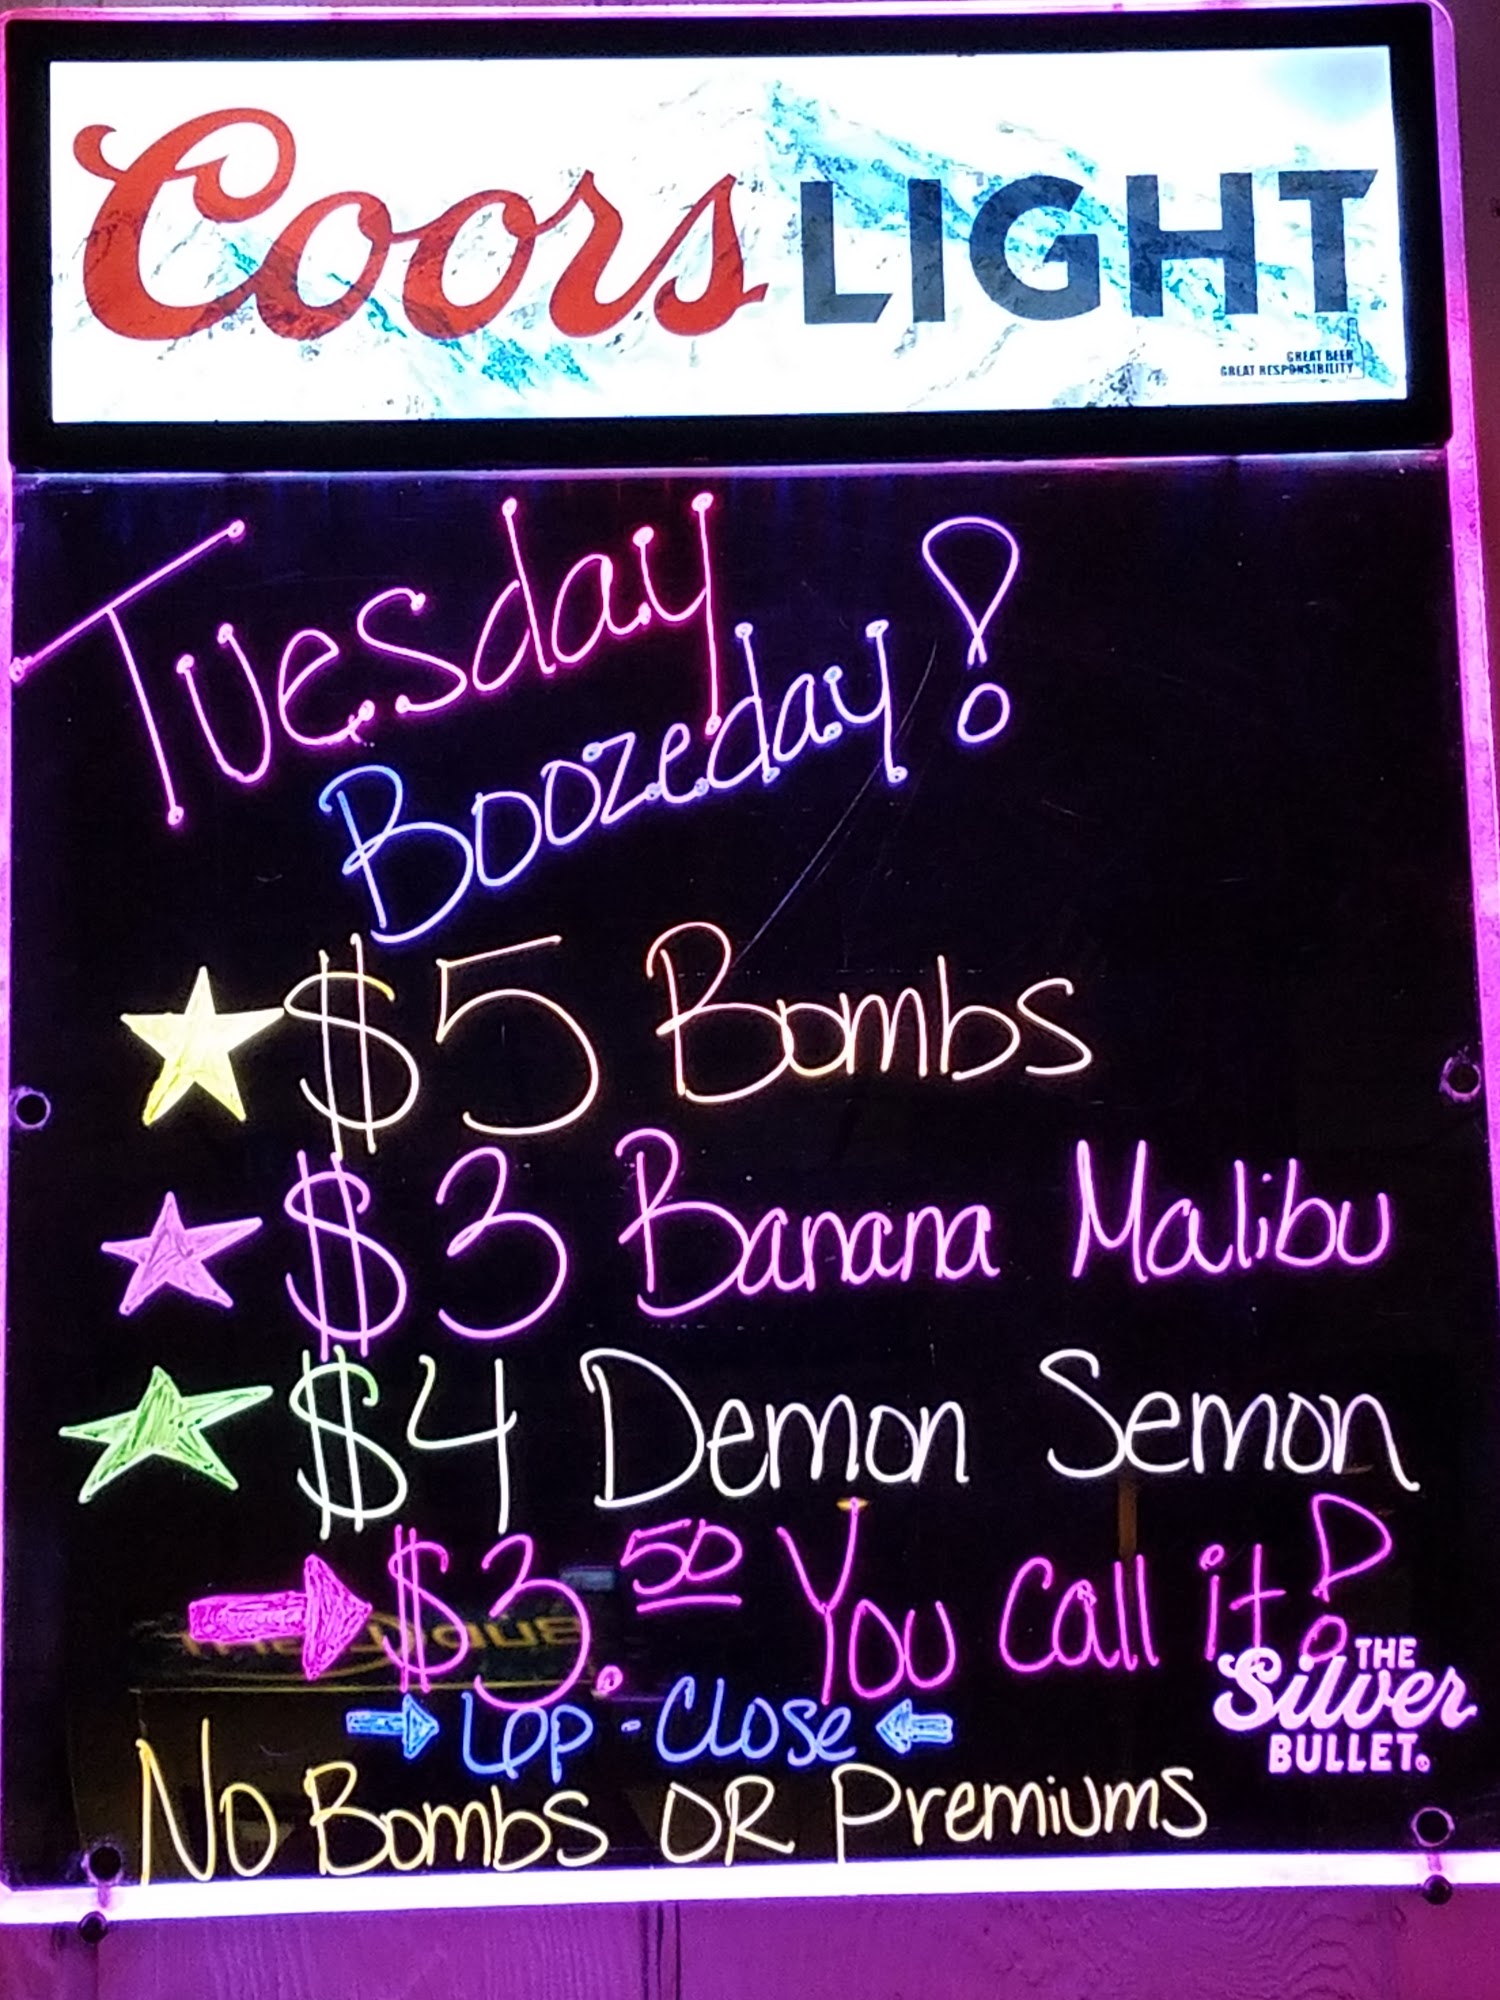 Coors LIGHT
GREAT BEER
GREAT RESPONSIBILITY
Tuesday
Boozeday!
$5 Bombs
$3 Banana Malibu
$4 Demon Semon
$3.50 You Call it!
10p - Close
No Bombs OR Premiums
THE
Silver
BULLET